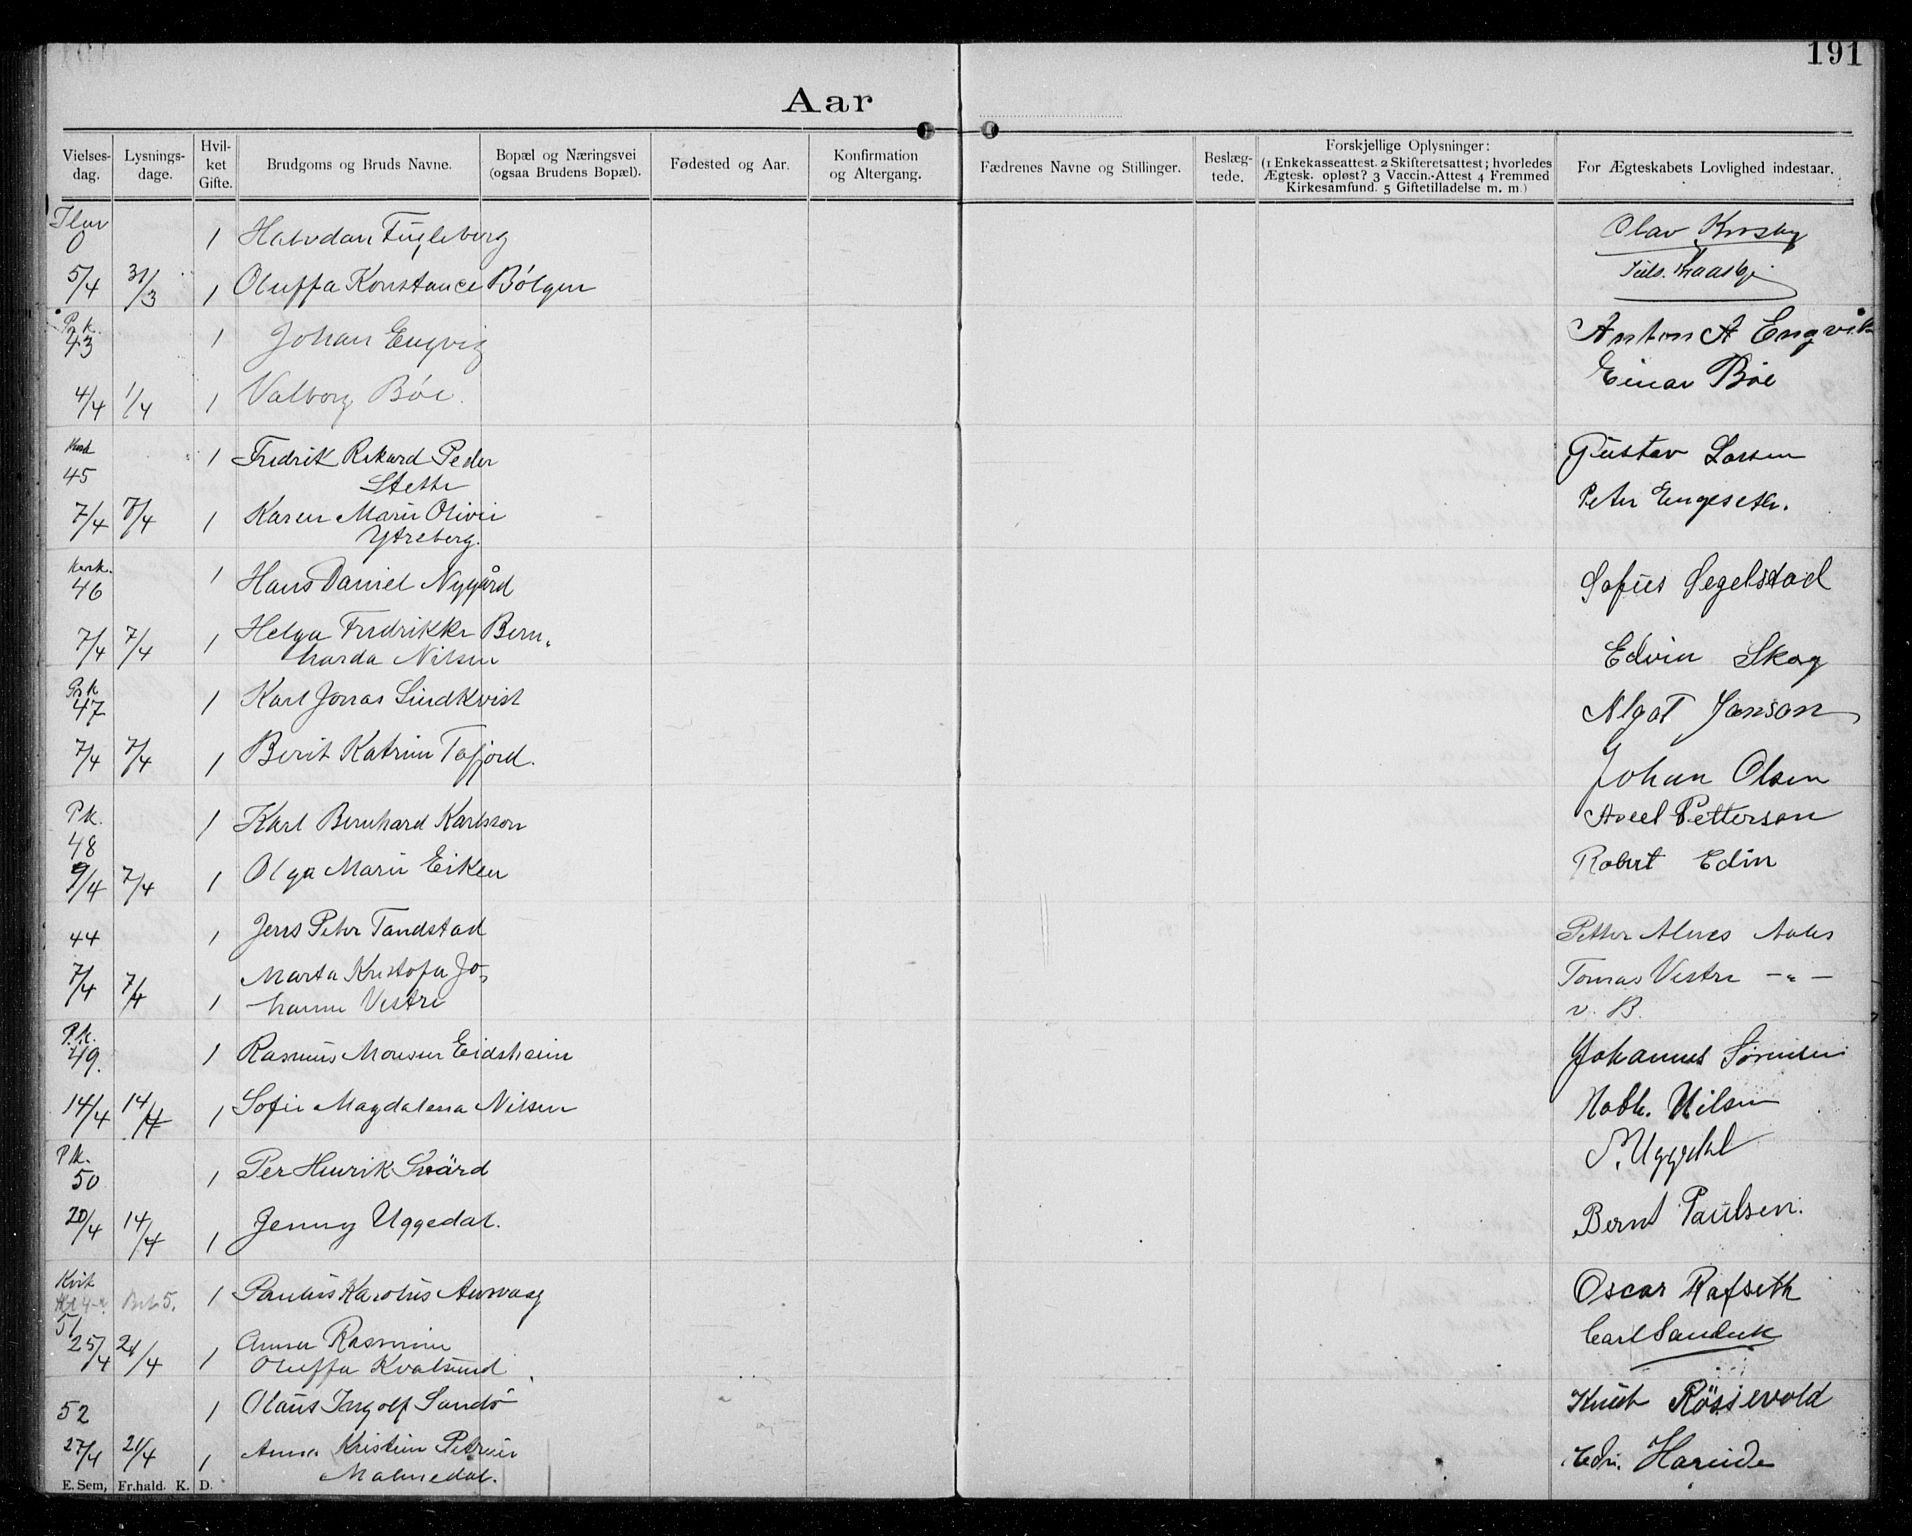 191
Aar
Vielses-dag.
Lysnings-dage.
Hvil-ket Gifte.
Brudgoms og Bruds Navne.
Bopæl og Næringsvei (ogsaa Brudens Bopæl).
Fødested og Aar.
Konfirmation og Altergang.
Fædrenes Navne og Stillinger.
Beslæg-tede.
Forskjellige Oplysninger: (1 Enkekasseattest. 2 Skifteretsattest; hvorledes Ægtesk. opløst? 3 Vaccin.-Attest 4 Fremmed Kirkesamfund. 5 Giftetilladelse m. m.)
For Ægteskabets Lovlighed indestaar.
1 Halvdan Fugleberg Olav
5/4 31/3 1 Oluffa Konstance Bölgen
P. k. 43 1 Johan Engvig Anton A Engvik
4/4 1/4 1 Valborg Böe. Einar Böe
45 1 Fredrik Rikard Peder Gustav Larsen
Stette
7/4 7/4 1 Karen Marie Olivie Peter Engeseth.
Ytreberg.
46 1 Hans Daniel Nygård Sofus Segelstad
7/4 7/4 1 Helga Fredrikke Bern- Edvin Skog
harda Nilsen
47 1 Karl Jonas Lindkvist Algot Janson
7/4 7/4 1 Berit Katrine Tafjord. Johan Olsen
P k. 48 1 Karl Bernhard Karlsson Axel Petterson
9/4 7/4 1 Olga Marie Eiken Robert Edin
44 1 Jens Peter Tandstad Petter Alnes
7/4 7/4 Marta Kristofa Jo- Tomas Vestre -"-
1 hanne Vestre v. B.
P. k. 49. 1 Rasmus Monsen Eidsheim Johannes Sörensen
14/4 14/4 1 Sofie Magdalena Nilsen Nilsen
P k. 50 1 Per Henrik Svärd Uggedal
20/4 14/4 1 Jenny Uggedal. Bernt Paulsen.
51 1 Paulus Karolus Aursvaag Oscar Rafseth
25/4 21/4 1 Anna Rasmine Carl Sandvik
Oluffa Kvalsund
52 1 Olaus Ingolf Sandö Knut Rössevold
27/4 21/4 1 Anna Kristine Petrine Edv. Hareide
Malmedal.
E. Sem, Fr.hald. K. D.